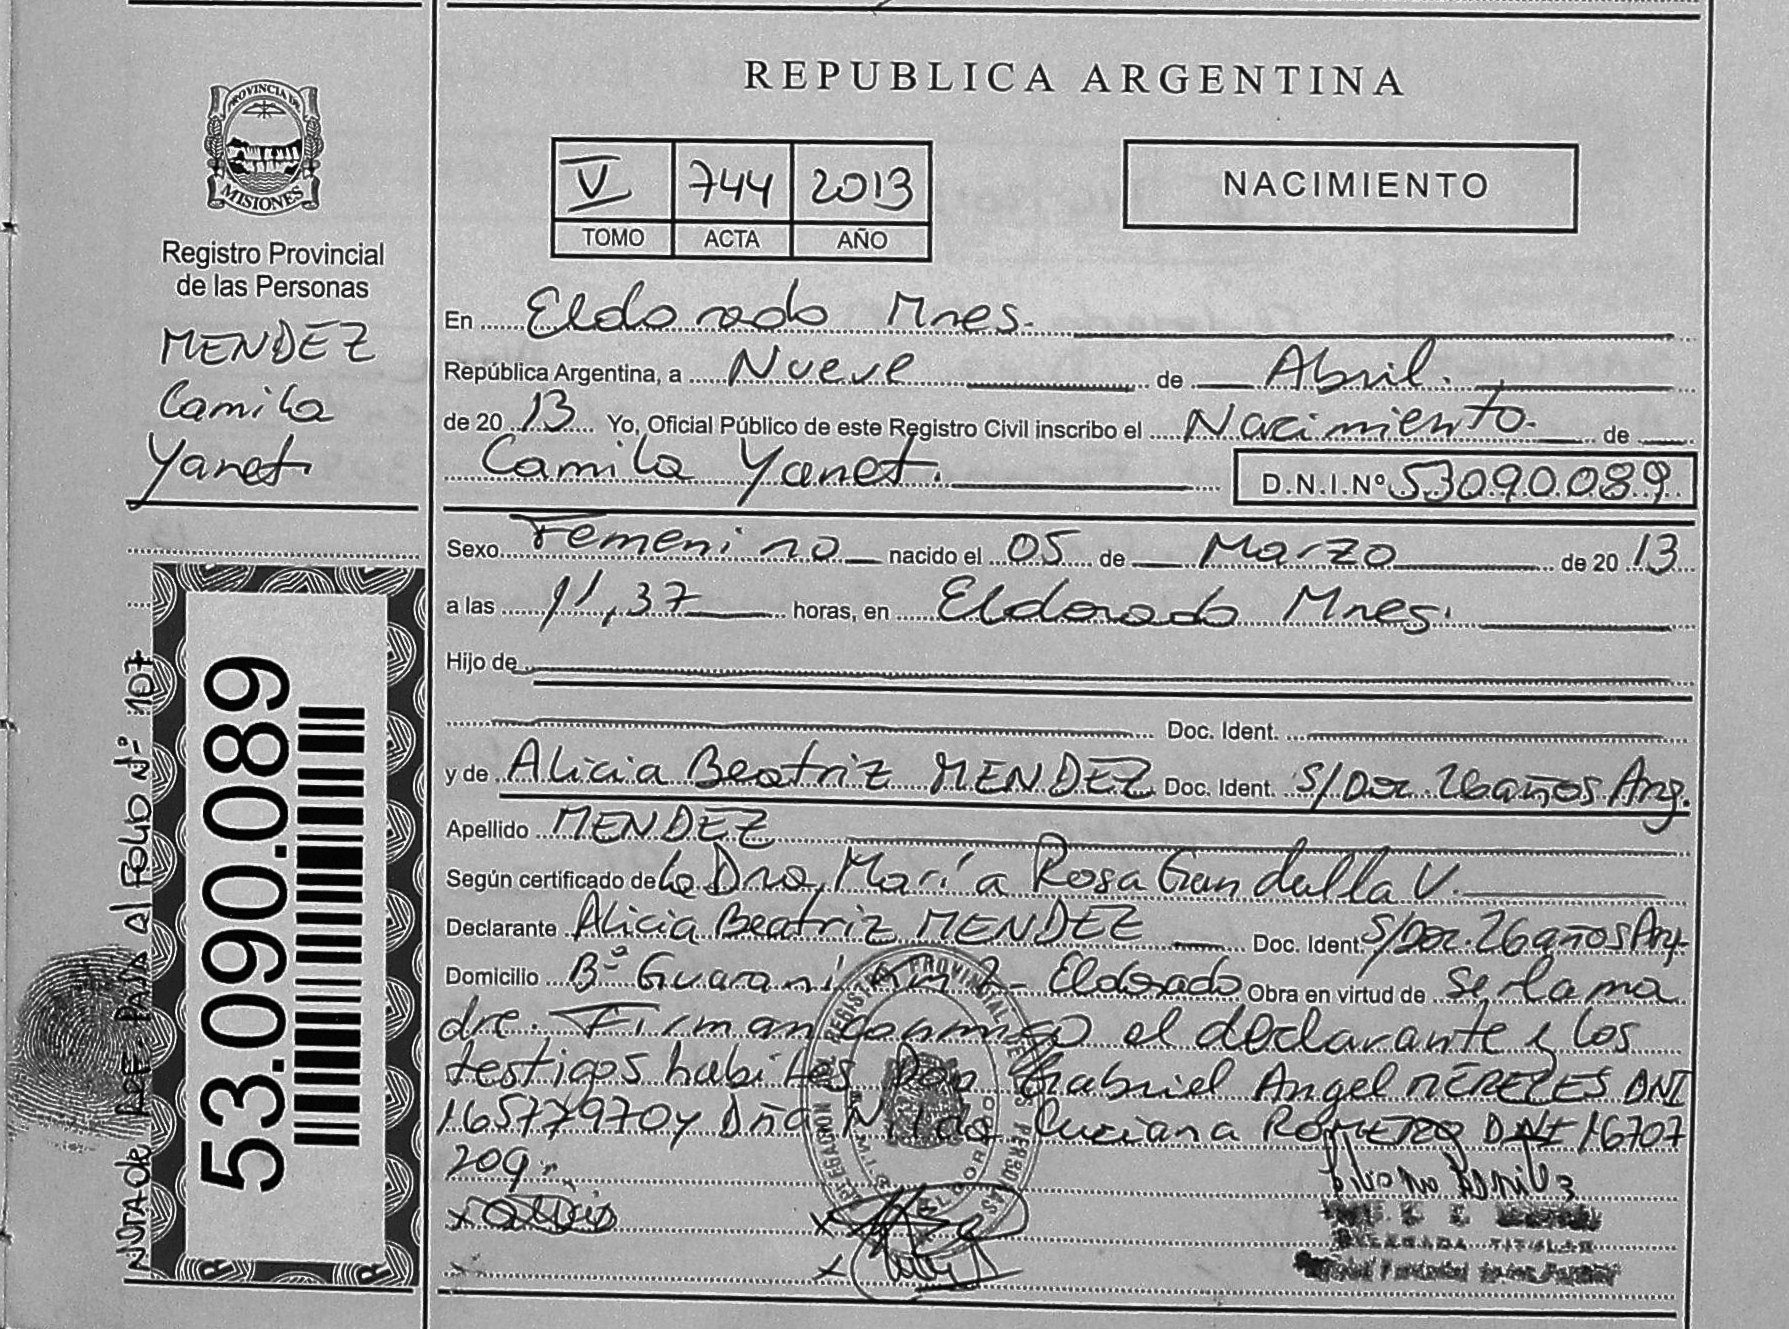 REPUBLICA ARGENTINA
PROVINCIA DE
MISIONES
Registro Provincial
de las Personas
MENDEZ
Camila
Yanet
V 744 2013
TOMO ACTA AÑO
NACIMIENTO
En Eldorado Mnes.
República Argentina, a Nueve de Abril.
de 20 13 Yo, Oficial Público de este Registro Civil inscribo el Nacimiento de
Camila Yanet. D.N.I.Nº 53090.089
Sexo Femenino nacido el 05 de Marzo de 20 13
a las 11,37 horas, en Eldorado Mnes.
Hijo de
Doc. Ident.
y de Alicia Beatriz MENDEZ Doc. Ident. S/Doc. 26 años Arg.
Apellido MENDEZ
Según certificado de la Dra. María Rosa Gandulla V.
Declarante Alicia Beatriz MENDEZ Doc. Ident. S/Doc. 26 años Arg.
Domicilio Bº Guaraní KM 2 - Eldorado Obra en virtud de Ser la ma
dre. Firman conmigo el declarante y los
testigos habiles Don Gabriel Angel MERELES DNI
16577970 y Dña Nilda Luciana ROMERO DNI 16707
209.-
DELEGADA TITULAR
NOTA de REF. PASA al FOLIO Nº 107
53.090.089